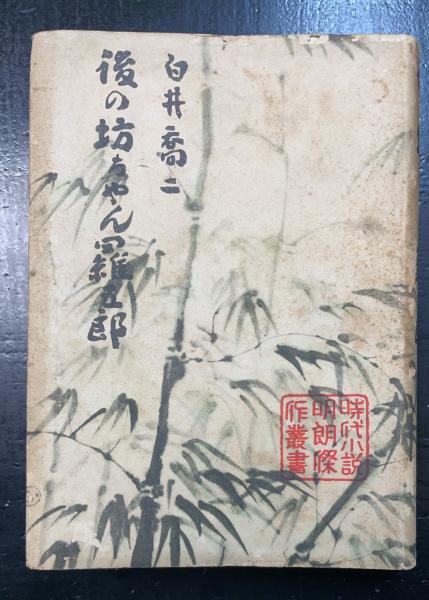 白井喬二
後の坊ちやん羅五郎
時代小説
明朗傑
作叢書